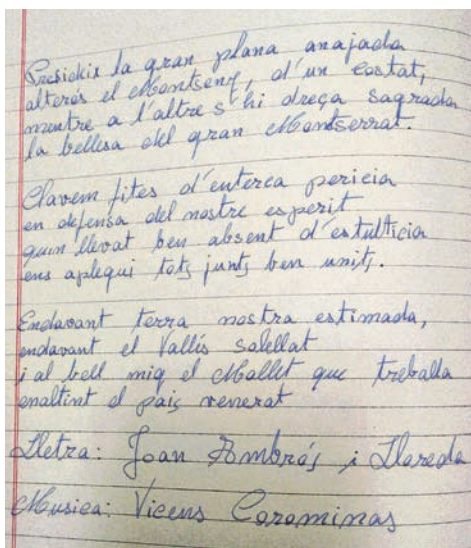 Presideix la gran plana anajada
alterós el Montseny, d'un costat,
mentre a l'altre s'hi dreça sagrada
la bellesa del gran Montserrat.
Clavem fites d'enterca pericia
en defensa del nostre esperit
quin llevat ben absent d'estulticia
ens aplequi tots junts ben units.
Endavant terra nostra estimada,
endavant el Vallís salellat
i al bell mig el Mollet que treballa
enaltint el país venerat
Lletra: Joan Ambrós i Lloreda
Musica: Vicens Corominas